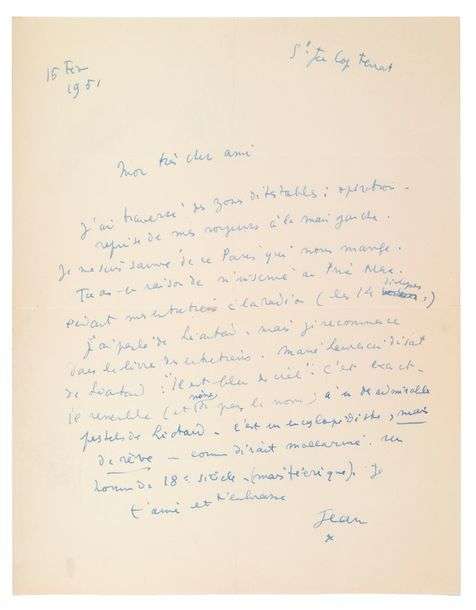 15 Fev
1951
St Jean Cap Ferrat
Mon très cher ami
J'ai traversé des zones détestables : opération -
reprise de mes rougeurs à la main gauche.
Je me suis sauvé de ce Paris qui nous mange.
Tu as eu raison de
pendant mes entretiens à la radio (les 14 disques)
J'ai parlé de Liotard - mais je recommence
dans le livre des entretiens. disait
de Liotard : "Il est bleu de ciel". C'est exact -
Il ressemble (et même par le nom) à un admirable
pastel de Liotard - C'est un encyclopédiste, mais
de rêve - comme disait Mallarmé. un
homme du 18e siècle - (mais féerique). Je
t'aime et t'embrasse
Jean
*